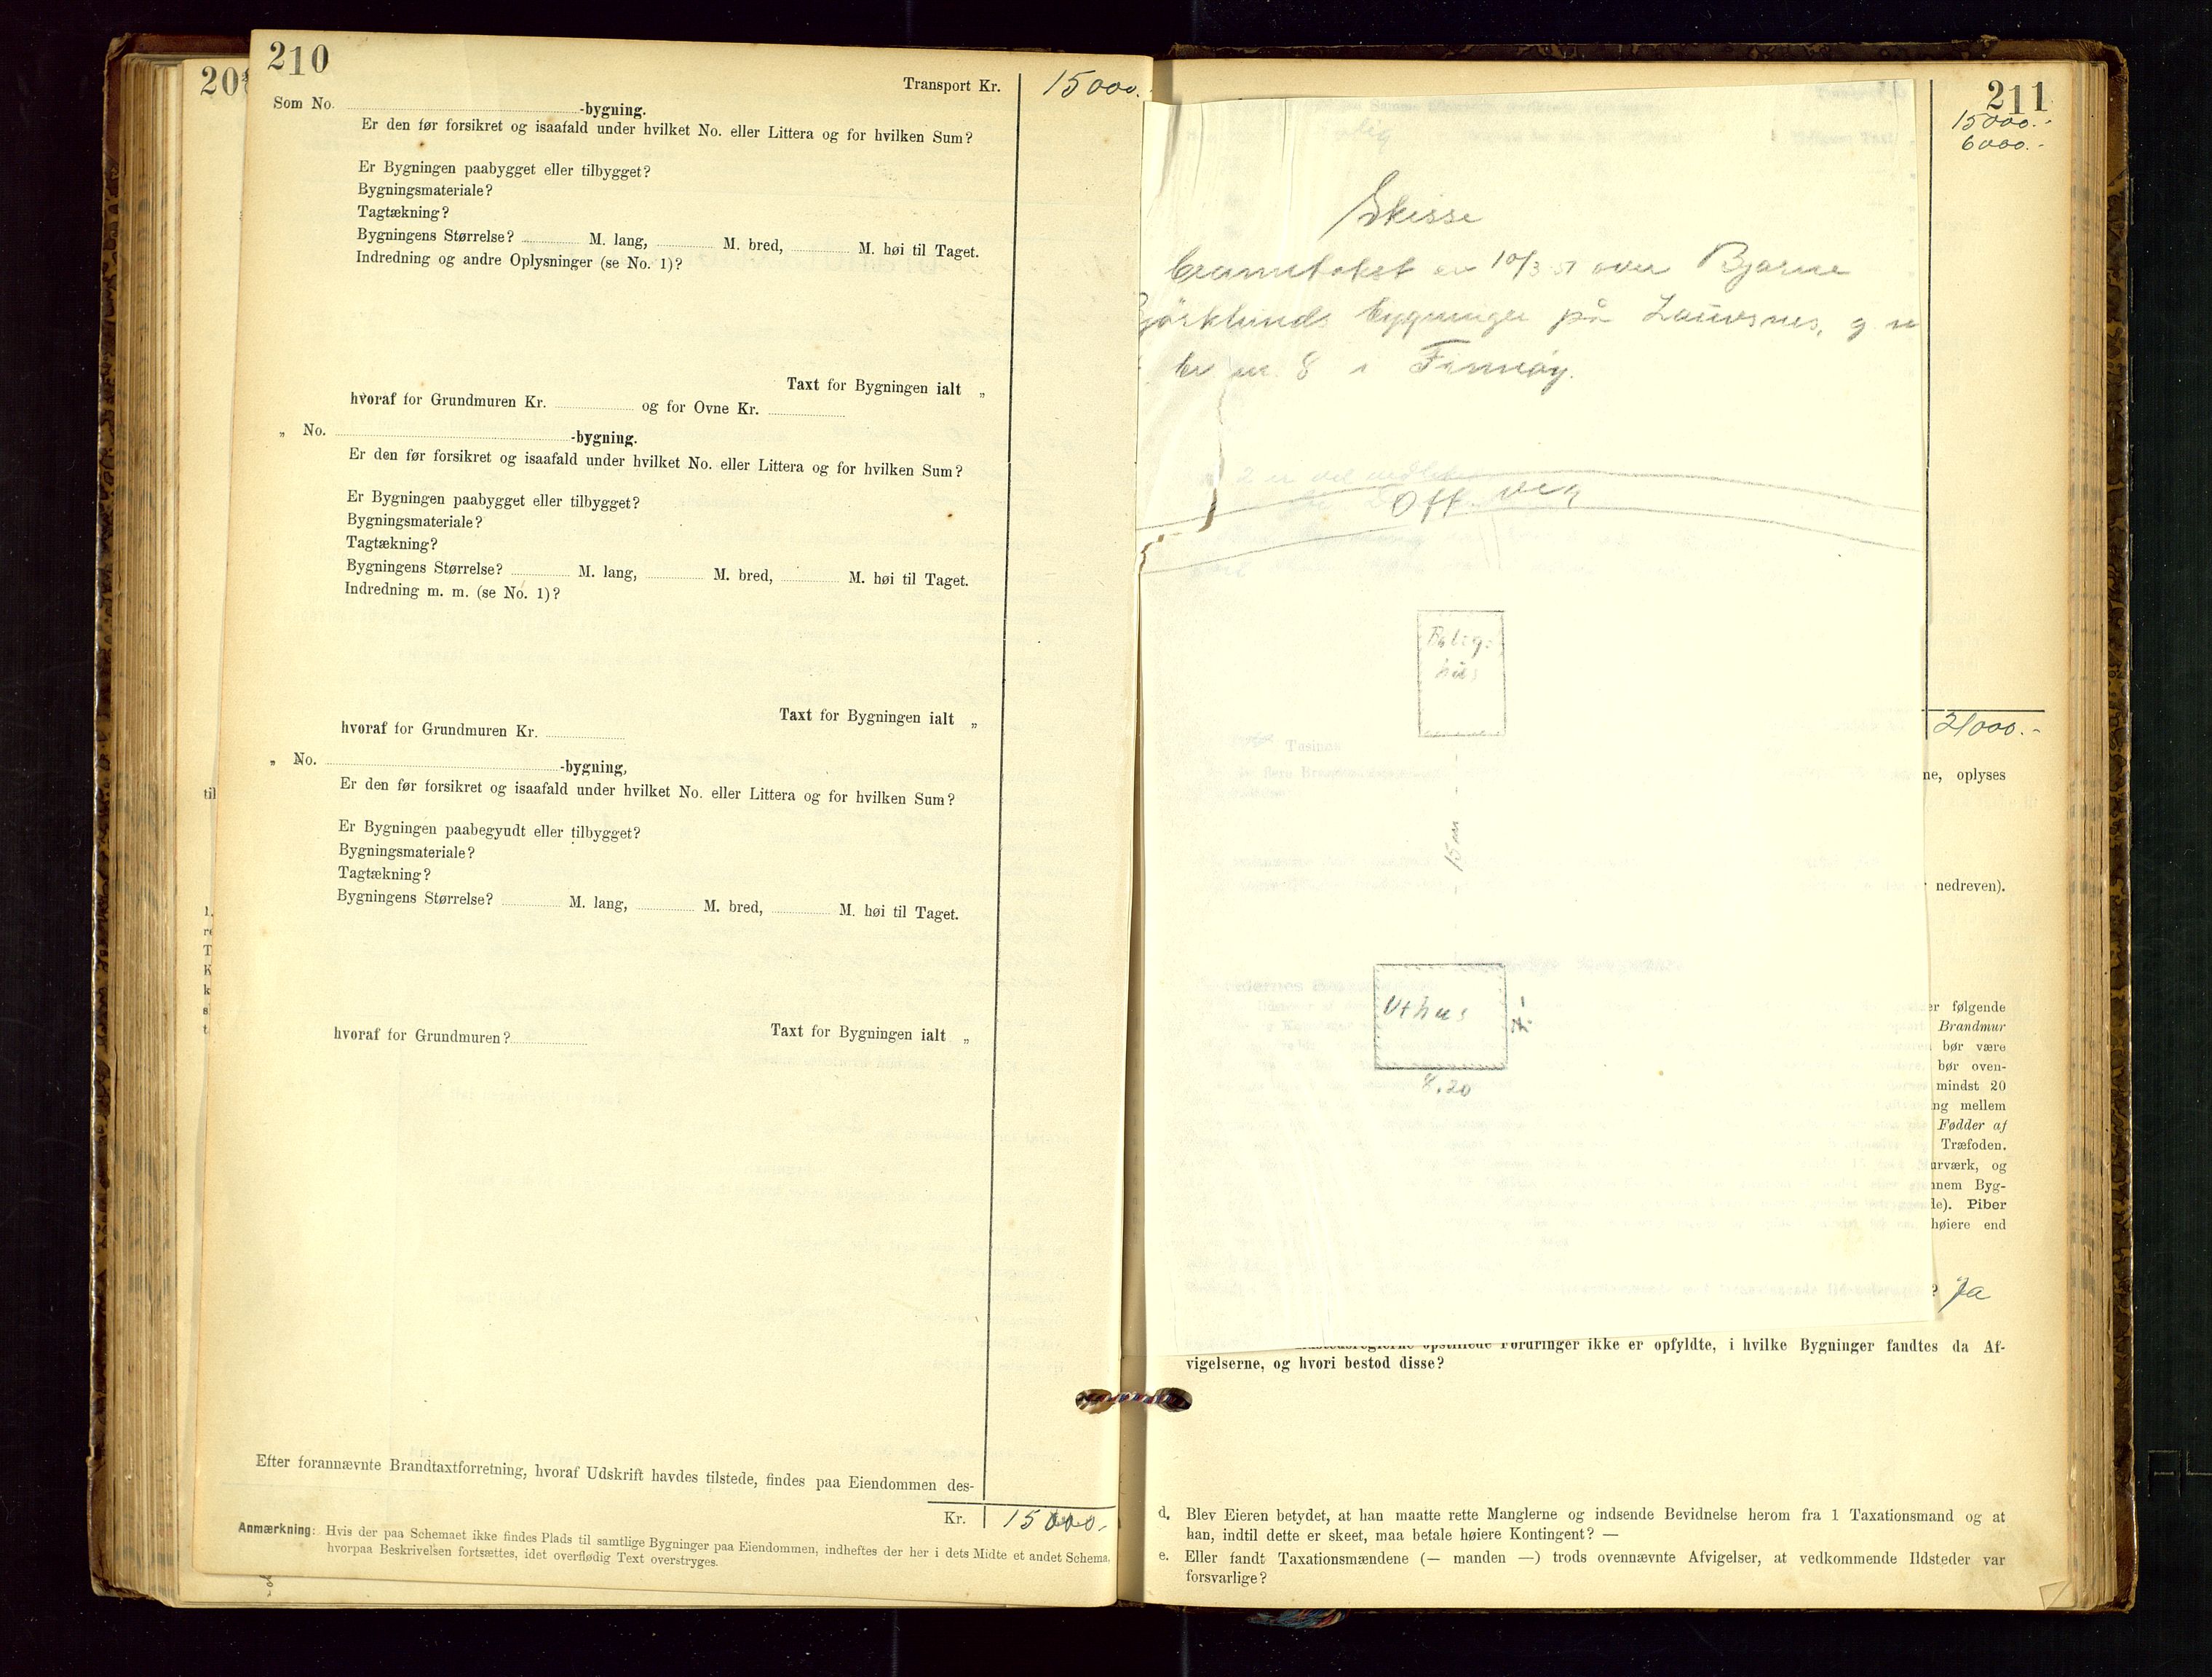 210
Transport Kr. 15000.
Som No. -bygning.
Er den før forsikret og isaafald under hvilket No. eller Littera og for hvilken Sum?
Er Bygningen paabygget eller tilbygget?
Bygningsmateriale?
Tagtækning?
Bygningens Størrelse? M. lang, M. bred, M. høi til Taget.
Indredning og andre Oplysninger (se No. 1)?
Taxt for Bygningen ialt „
hvoraf for Grundmuren Kr. og for Ovne Kr.
„ No. -bygning.
Er den før forsikret og isaafald under hvilket No. eller Littera og for hvilken Sum?
Er Bygningen paabygget eller tilbygget?
Bygningsmateriale?
Tagtækning?
Bygningens Størrelse? M. lang, M. bred, M. høi til Taget.
Indredning m. m. (se No. 1)?
Taxt for Bygningen ialt „
hvoraf for Grundmuren Kr.
„ No. -bygning,
Er den før forsikret og isaafald under hvilket No. eller Littera og for hvilken Sum?
Er Bygningen paabegyudt eller tilbygget?
Bygningsmateriale?
Tagtækning?
Bygningens Størrelse? M. lang, M. bred, M. høi til Taget.
hvoraf for Grundmuren? Taxt for Bygningen ialt „
Efter forannævnte Brandtaxtforretning, hvoraf Udskrift havdes tilstede, findes paa Eiendommen des-
Kr. 15000.-
Anmærkning: Hvis der paa Schemaet ikke findes Plads til samtlige Bygninger paa Eiendommen, indheftes der her i dets Midte et andet Schema,
hvorpaa Beskrivelsen fortsættes, idet overflødig Text overstryges.
211
15000.-
6000.-
Skisse
10/3 51 over Bjarne
bygninger på Lauvsnes, g. n
br. nr. 8 i Finnøy.
Off. vei
Bolig-
hus
15 m
Uthus
7.-
8.20
21000.-
ne, oplyses
nedreven).
er følgende
Brandmur
bør være
bør oven-
mindst 20
ng mellem
Fødder af
Træfoden.
urværk, og
nnem Byg-
de). Piber
høiere end
? Ja
opstillede Fordringer ikke er opfyldte, i hvilke Bygninger fandtes da Af-
vigelserne, og hvori bestod disse?
d. Blev Eieren betydet, at han maatte rette Manglerne og indsende Bevidnelse herom fra 1 Taxationsmand og at
han, indtil dette er skeet, maa betale høiere Kontingent? —
e. Eller fandt Taxationsmændene (— manden —) trods ovennævnte Afvigelser, at vedkommende Ildsteder var
forsvarlige?